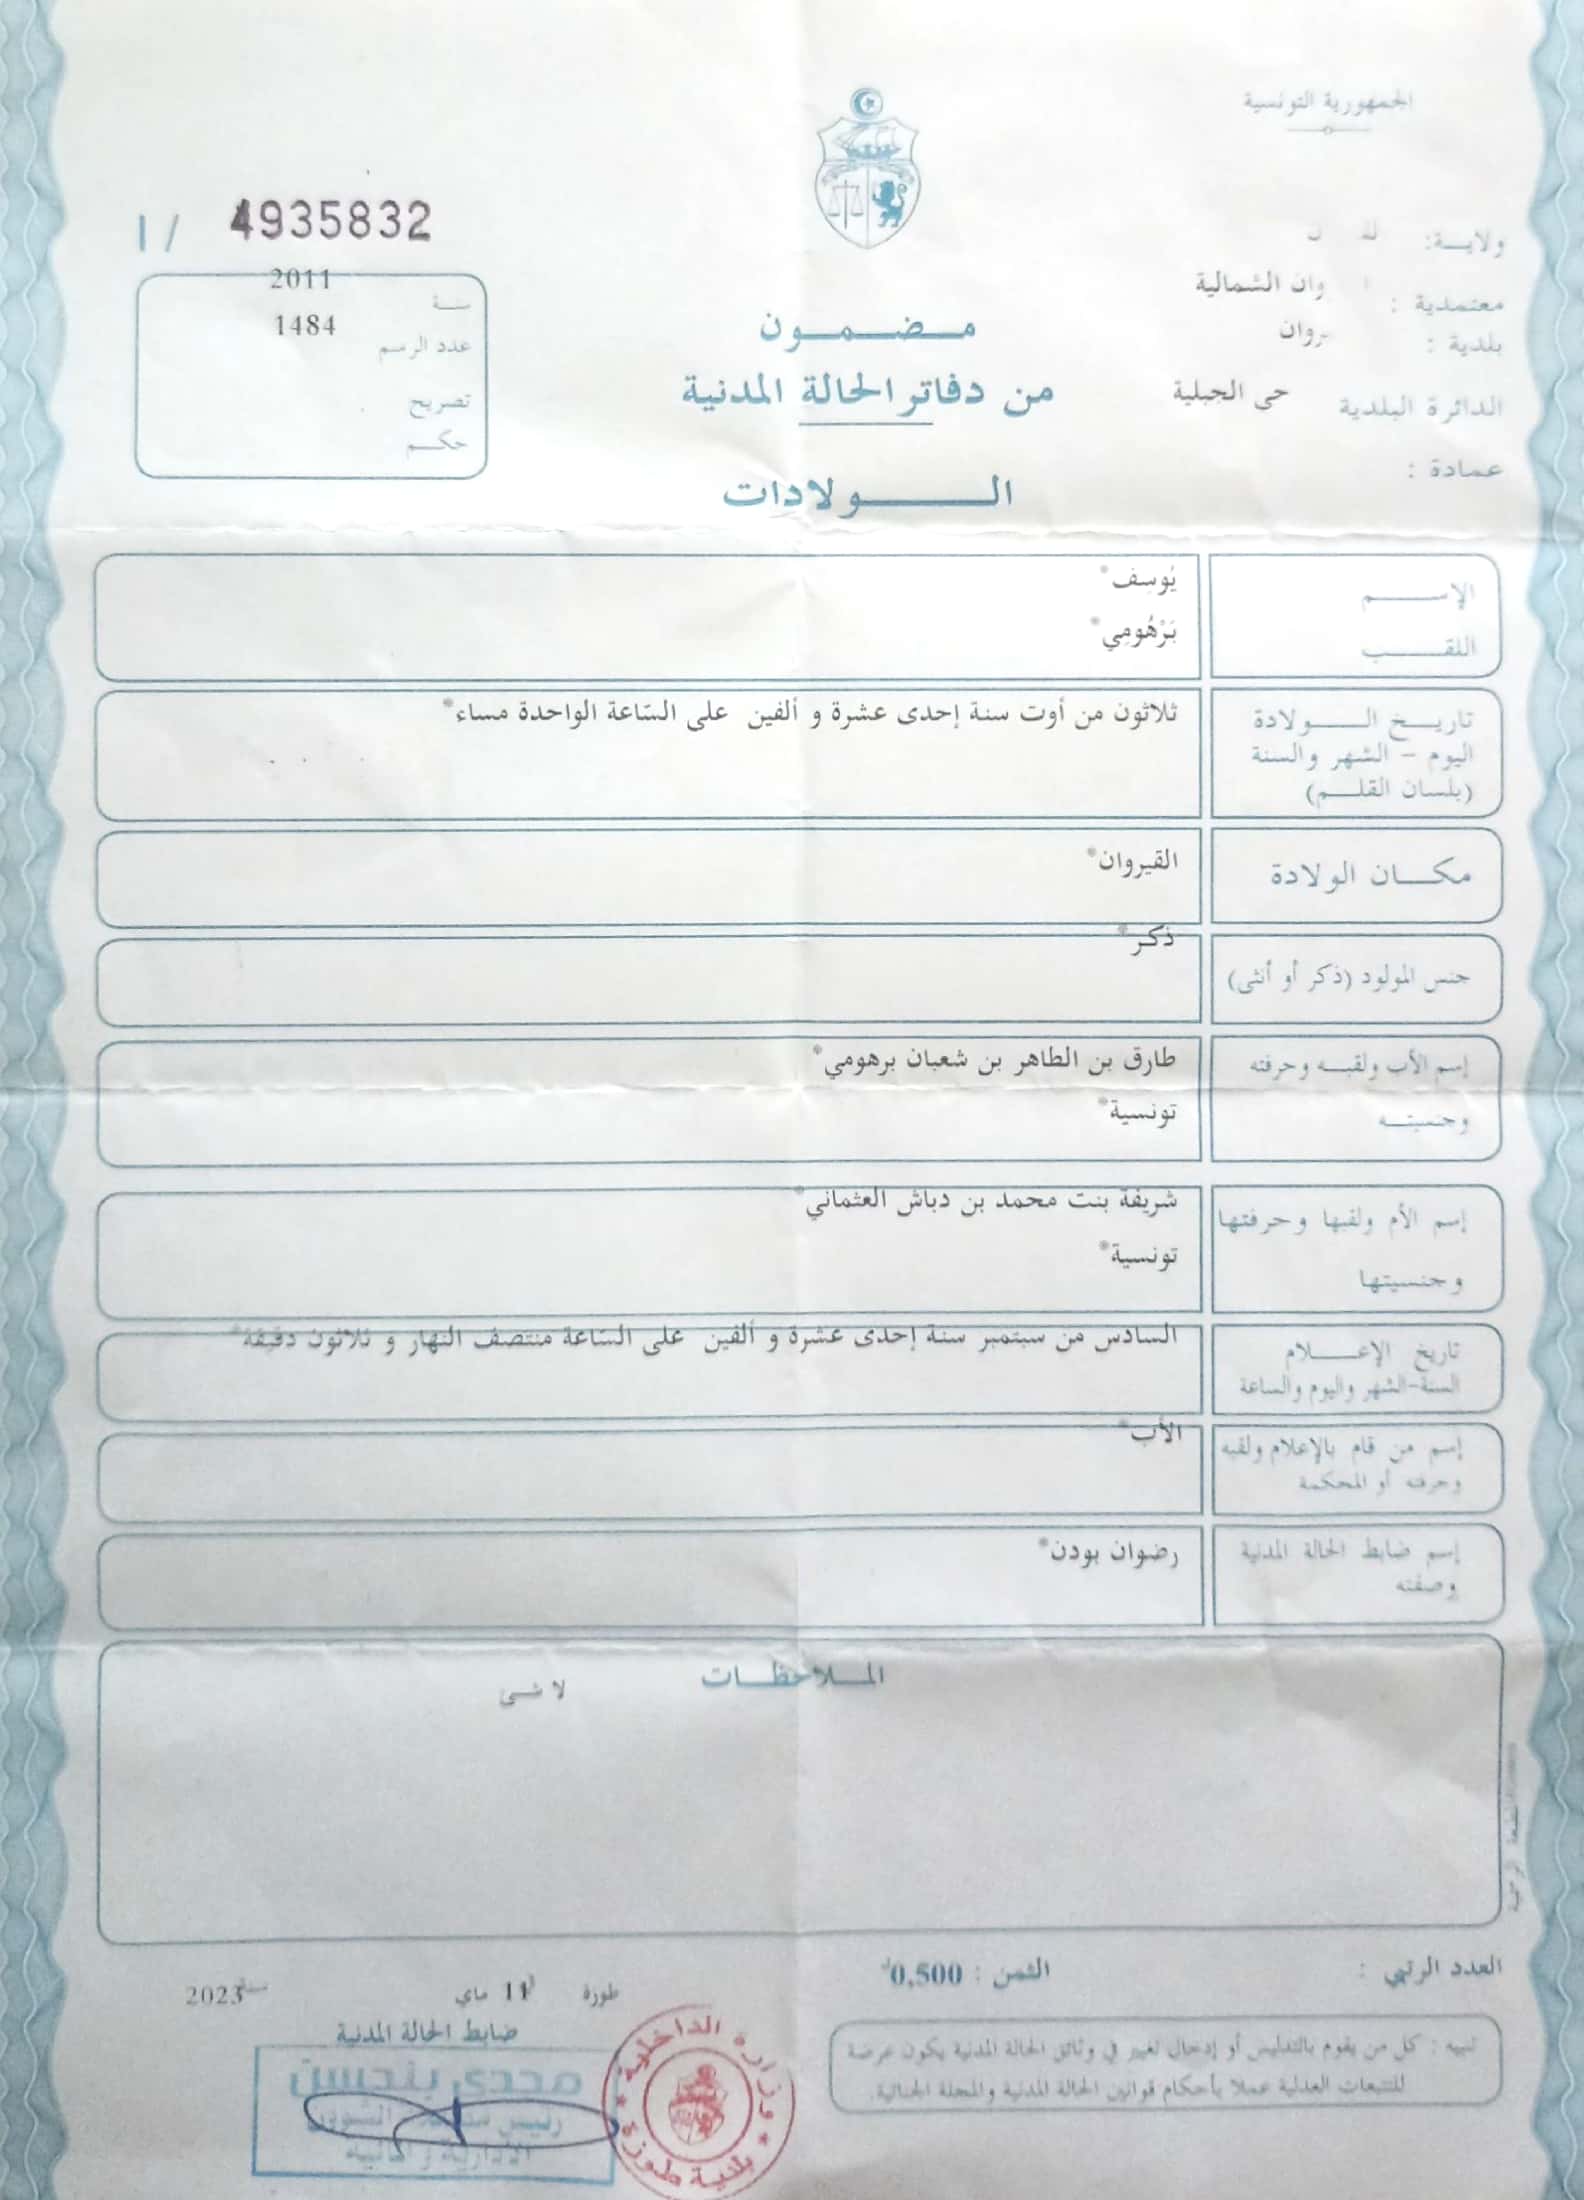 الجمهورية التونسية
ولايـــة:
معتمدية : وان الشمالية
بلدية : يروان
الدائرة البلدية حي الجبلية
عمادة :
مـــضـــمـــون
من دفاتر الحالة المدنية
الـــــــولادات
4935832 / ا
سنـة 2011
عدد الرسم 1484
تصريح
حكـــم
الإســــــم يُوسِف*
اللقــــــب بَرْهُومِي*
تاريـــخ الـــــولادة ثلاثون من أوت سنة إحدى عشرة و ألفين على السّاعة الواحدة مساء*
اليوم – الشهر والسنة
(بلسان القلـــم)
مكـــان الولادة القيروان*
جنس المولود (ذكر أو أنثى) ذكر*
إسم الأب ولقبـــه وحرفته طارق بن الطاهر بن شعبان برهومي*
وجنسيتـــه تونسية*
إسم الأم ولقبها وحرفتها شريفة بنت محمد بن دباش العثماني*
وجنسيتها تونسية*
تاريخ الإعـــــلام السادس من سبتمبر سنة إحدى عشرة و ألفين على السّاعة منتصف النهار و ثلاثون دقيقة*
السنة-الشهر واليوم والساعة
إسم من قام بالإعلام ولقبه الأب*
وحرفته أو المحكمة
إسم ضابط الحالة المدنية رضوان بودن*
وصفته
المـــلاحظـــات
لا شئ
العدد الرتبي :
الثمن : 0,500د
طوزة 11 ماي سنة 2023
ضابط الحالة المدنية
تنبيه : كل من يقوم بالتدليس أو إدخال تغيير في وثائق الحالة المدنية يكون عرضة
للتتبعات العدلية عملا بأحكام قوانين الحالة المدنية والمجلة الجنائية.
مجدي بنحسن
رئيس الشؤون
الإدارية و المالية
وزارة الداخلية
بلدية طوزة
المطبعة الرسمية